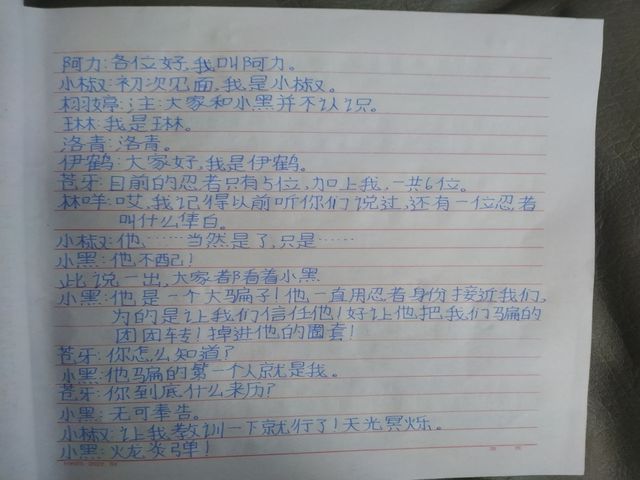 阿力:各位好,我叫阿力。
小椒:初次见面,我是小椒。
栩婷:注:大家和小黑并不认识。
琳:我是琳。
洛青:洛青。
伊鹤:大家好,我是伊鹤。
苍牙:目前的忍者只有5位,加上我,一共6位。
林咩:哎,我记得以前听你们说过,还有一位忍者
叫什么倳白。
小椒:他、……当然是了,只是……
小黑:他不配!
此说一出,大家都看着小黑
小黑:他是一个大骗子!他一直用忍者身份接近我们,
为的是让我们信任他!好让他把我们骗的
团团转!掉进他的圈套!
苍牙:你怎么知道?
小黑:他骗的第一个人就是我。
苍牙:你到底什么来历?
小黑:无可奉告。
小椒:让我教训一下就行了!天光冥烁。
小黑:火龙炎弹!